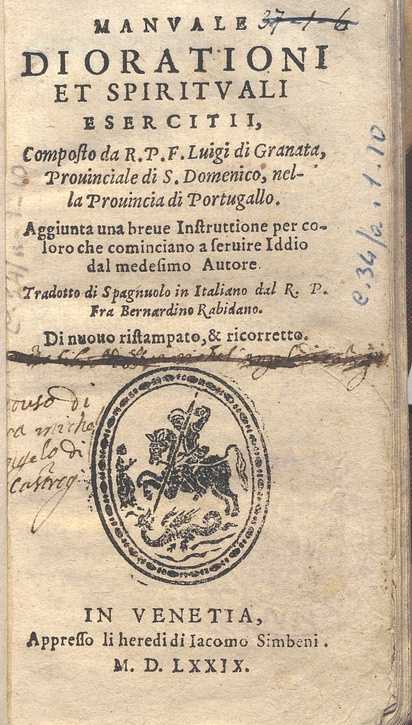 MANVALE 37-1-6
DI ORATIONI
ET SPIRITVALI
ESERCITII,
Composto da R. P. F. Luigi di Granata,
Prouinciale di S. Domenico, nel-
la Prouincia di Portugallo.
Aggiunta una breue Instruttione per co-
loro che cominciano a seruire Iddio
dal medesimo Autore.
Tradotto di Spagnuolo in Italiano dal R. P.
Fra Bernardino Rabidano.
Di nuouo ristampato, & ricorretto.
uso di
fra miche
angelo di
IN VENETIA,
Appresso li heredi di Iacomo Simbeni.
M. D. LXXIX.
c.34/a.1.10